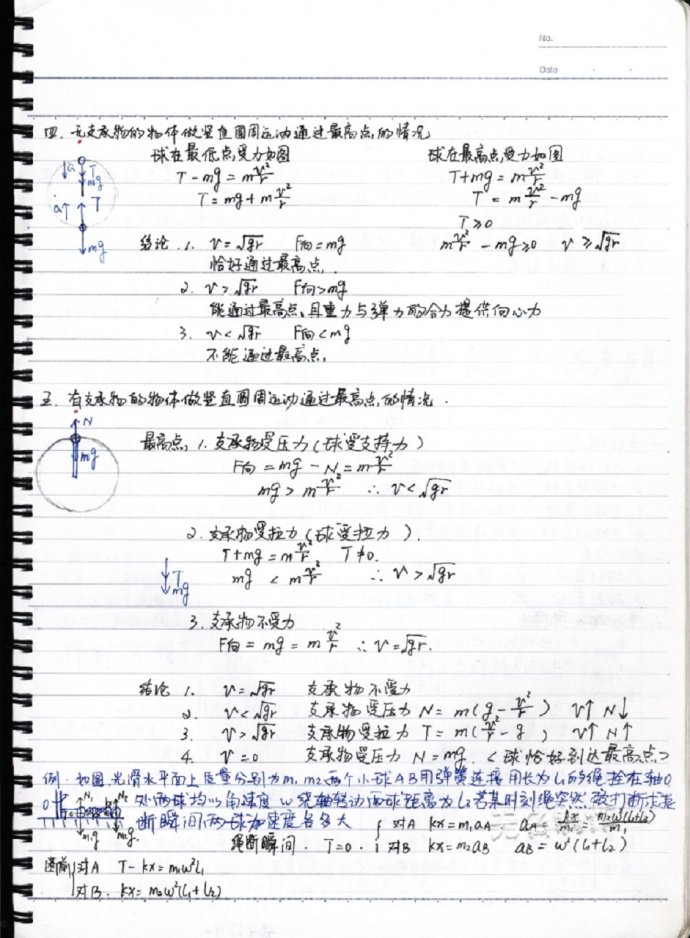 No.
Date
四. 无支承物的物体做竖直圆周运动通过最高点的情况
球在最低点,受力如图 球在最高点,受力如图
T-mg = m v²/r T+mg = m v²/r
T = mg + m v²/r T = m v²/r - mg
T≥0
m v²/r - mg ≥0 v ≥ √gr
a T mg
a T
mg
结论. 1. v = √gr F向 = mg
恰好通过最高点.
2. v > √gr F向 > mg
能通过最高点,且重力与弹力的合力提供向心力
3. v < √gr F向 < mg
不能通过最高点.
五. 有支承物的物体做竖直圆周运动通过最高点的情况.
N
mg
最高点, 1. 支承物受压力(球受支持力)
F向 = mg - N = m v²/r
mg > m v²/r ∴ v < √gr
2. 支承物受拉力(球受拉力).
T+mg = m v²/r T≠0.
mg < m v²/r ∴ v > √gr
T
mg
3. 支承物不受力
F向 = mg = m v²/r ∴ v = √gr.
结论 1. v = √gr 支承物不受力
2. v < √gr 支承物受压力 N = m(g - v²/r) v↑ N↓
3. v > √gr 支承物受拉力 T = m(v²/r - g) v↑ N↑
4. v = 0 支承物受压力 N = mg. <球恰好到达最高点>
例. 如图,光滑水平面上质量分别为m₁ m₂两个小球AB用弹簧连接用长为l₁的绳拴在轴O
O 处 两球均以角速度 w 绕轴转动两球距离为l₂若某时刻绳突然 断求绳
断瞬间,两球加速度各多大
绳断瞬间. T=0. 对A kx = m₁aA aA = kx/m₁ = m₂w²(l₁+l₂)/m₁
对B kx = m₂aB aB = w²(l₁+l₂)
断前 对A T - kx = m₁w²l₁
对B. kx = m₂w²(l₁+l₂)